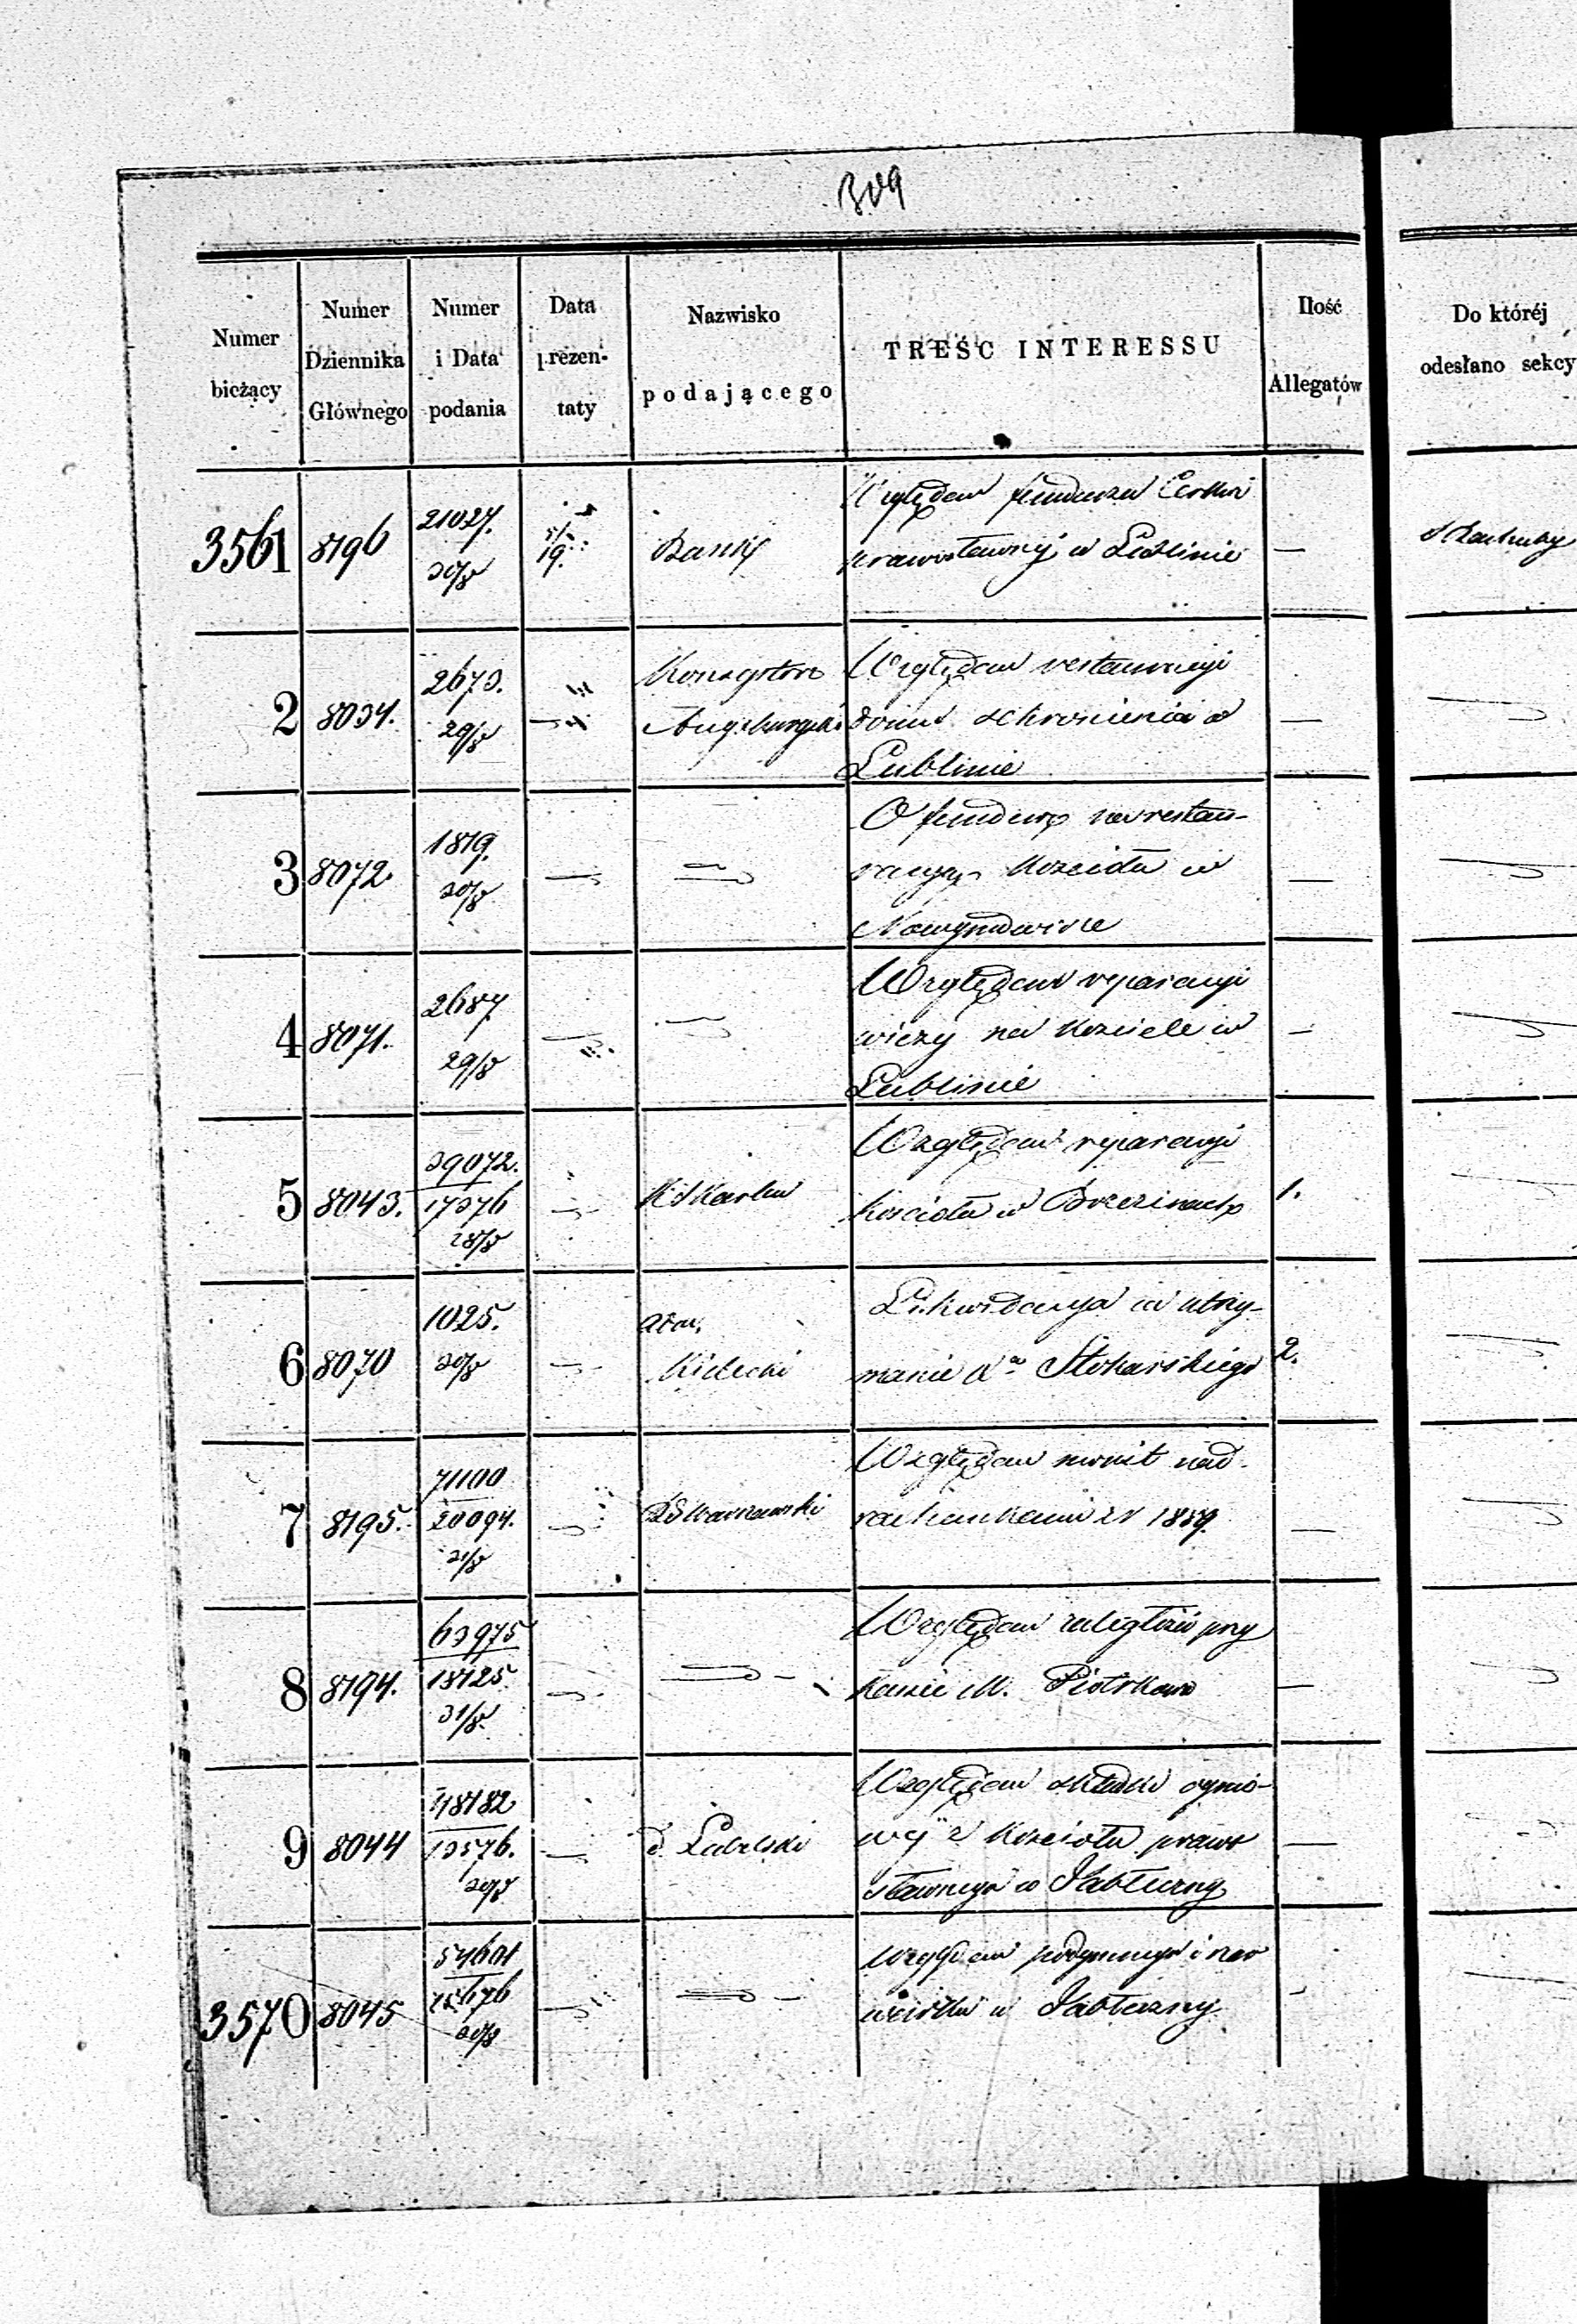 309
Numer bieżący
Numer Dziennika Głównego
Numer i Data podania
Data prezentaty
Nazwisko podającego
TREŚĆ INTERESSU
Ilość Allegatów
Do któréj odesłano sekcy
3561 8196 21027. 30/8 19. Bank
Względem funduszu Cerkwi
prawosławnéj w Lublinie —
2 8034. 2673. 29/8 Konsystorz Augsburgski
Względem restauracyi
domu schronienia w —
Lublinie
3 8072. 1819. 30/8
O fundusz na restau-
racyą Kościoła w —
Nowymdworze
4 8071. 2687. 29/8
Względem reparacyi
wieży na Kościele w —
Lublinie
5 8043. 39072. 17376 28/8
Względem reparacyi
Kościoła w Brzezinach 1.
6 8070 1025. 30/8
Likwidacya za utrzy-
manie Stokarskiego 2.
7 8195. 71100 20094. 31/8 Warszawski
Względem monit nad
rachunkami z r 1859. —
8 8194. 63975 18125. 31/8
Względem zaległości przy
Kassie M. Piotrkowa —
9 8044 48182 13576. 30/8 Lubelski
Względem składki ognio-
wéj z Kościoła prawo
sławnego w Jabłeczny —
3570 8045 54601 30/8
Względem podymnego i
w Jabłeczny -